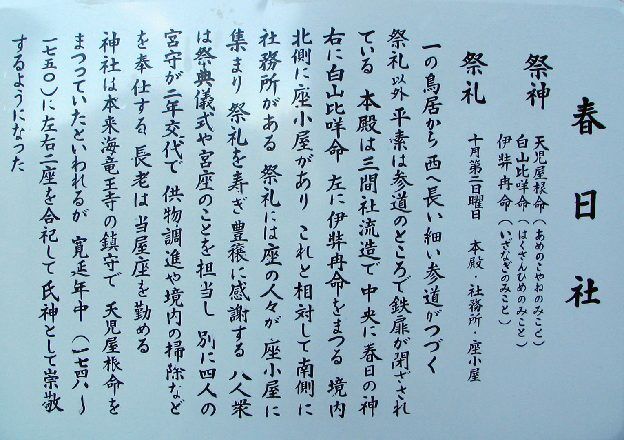 春日社
祭神 天児屋根命(あめのこやねのみこと)
白山比咩命(はくさんひめのみこと)
伊弉冉命(いざなぎのみこと)
祭礼 十月第二日曜日 本殿 社務所・座小屋
一の鳥居から西へ長い細い参道がつづく
祭礼以外平素は参道のところで鉄扉が閉ざされ
ている 本殿は三間社流造で中央に春日の神
右に白山比咩命 左に伊弉冉命をまつる 境内
北側に座小屋があり これと相対して南側に
社務所がある 祭礼には座の人々が 座小屋に
集まり 祭礼を寿ぎ豊穣に感謝する 八人衆
は祭典儀式や宮座のことを担当し 別に四人の
宮守が二年交代で 供物調進や境内の掃除など
を奉仕する 長老は 当屋座を勤める
神社は本来海竜王寺の鎮守で 天児屋根命を
まつっていたといわれるが 寛延年中(一七四八~
一七五〇)に左右二座を合祀して氏神として崇敬
するようになった